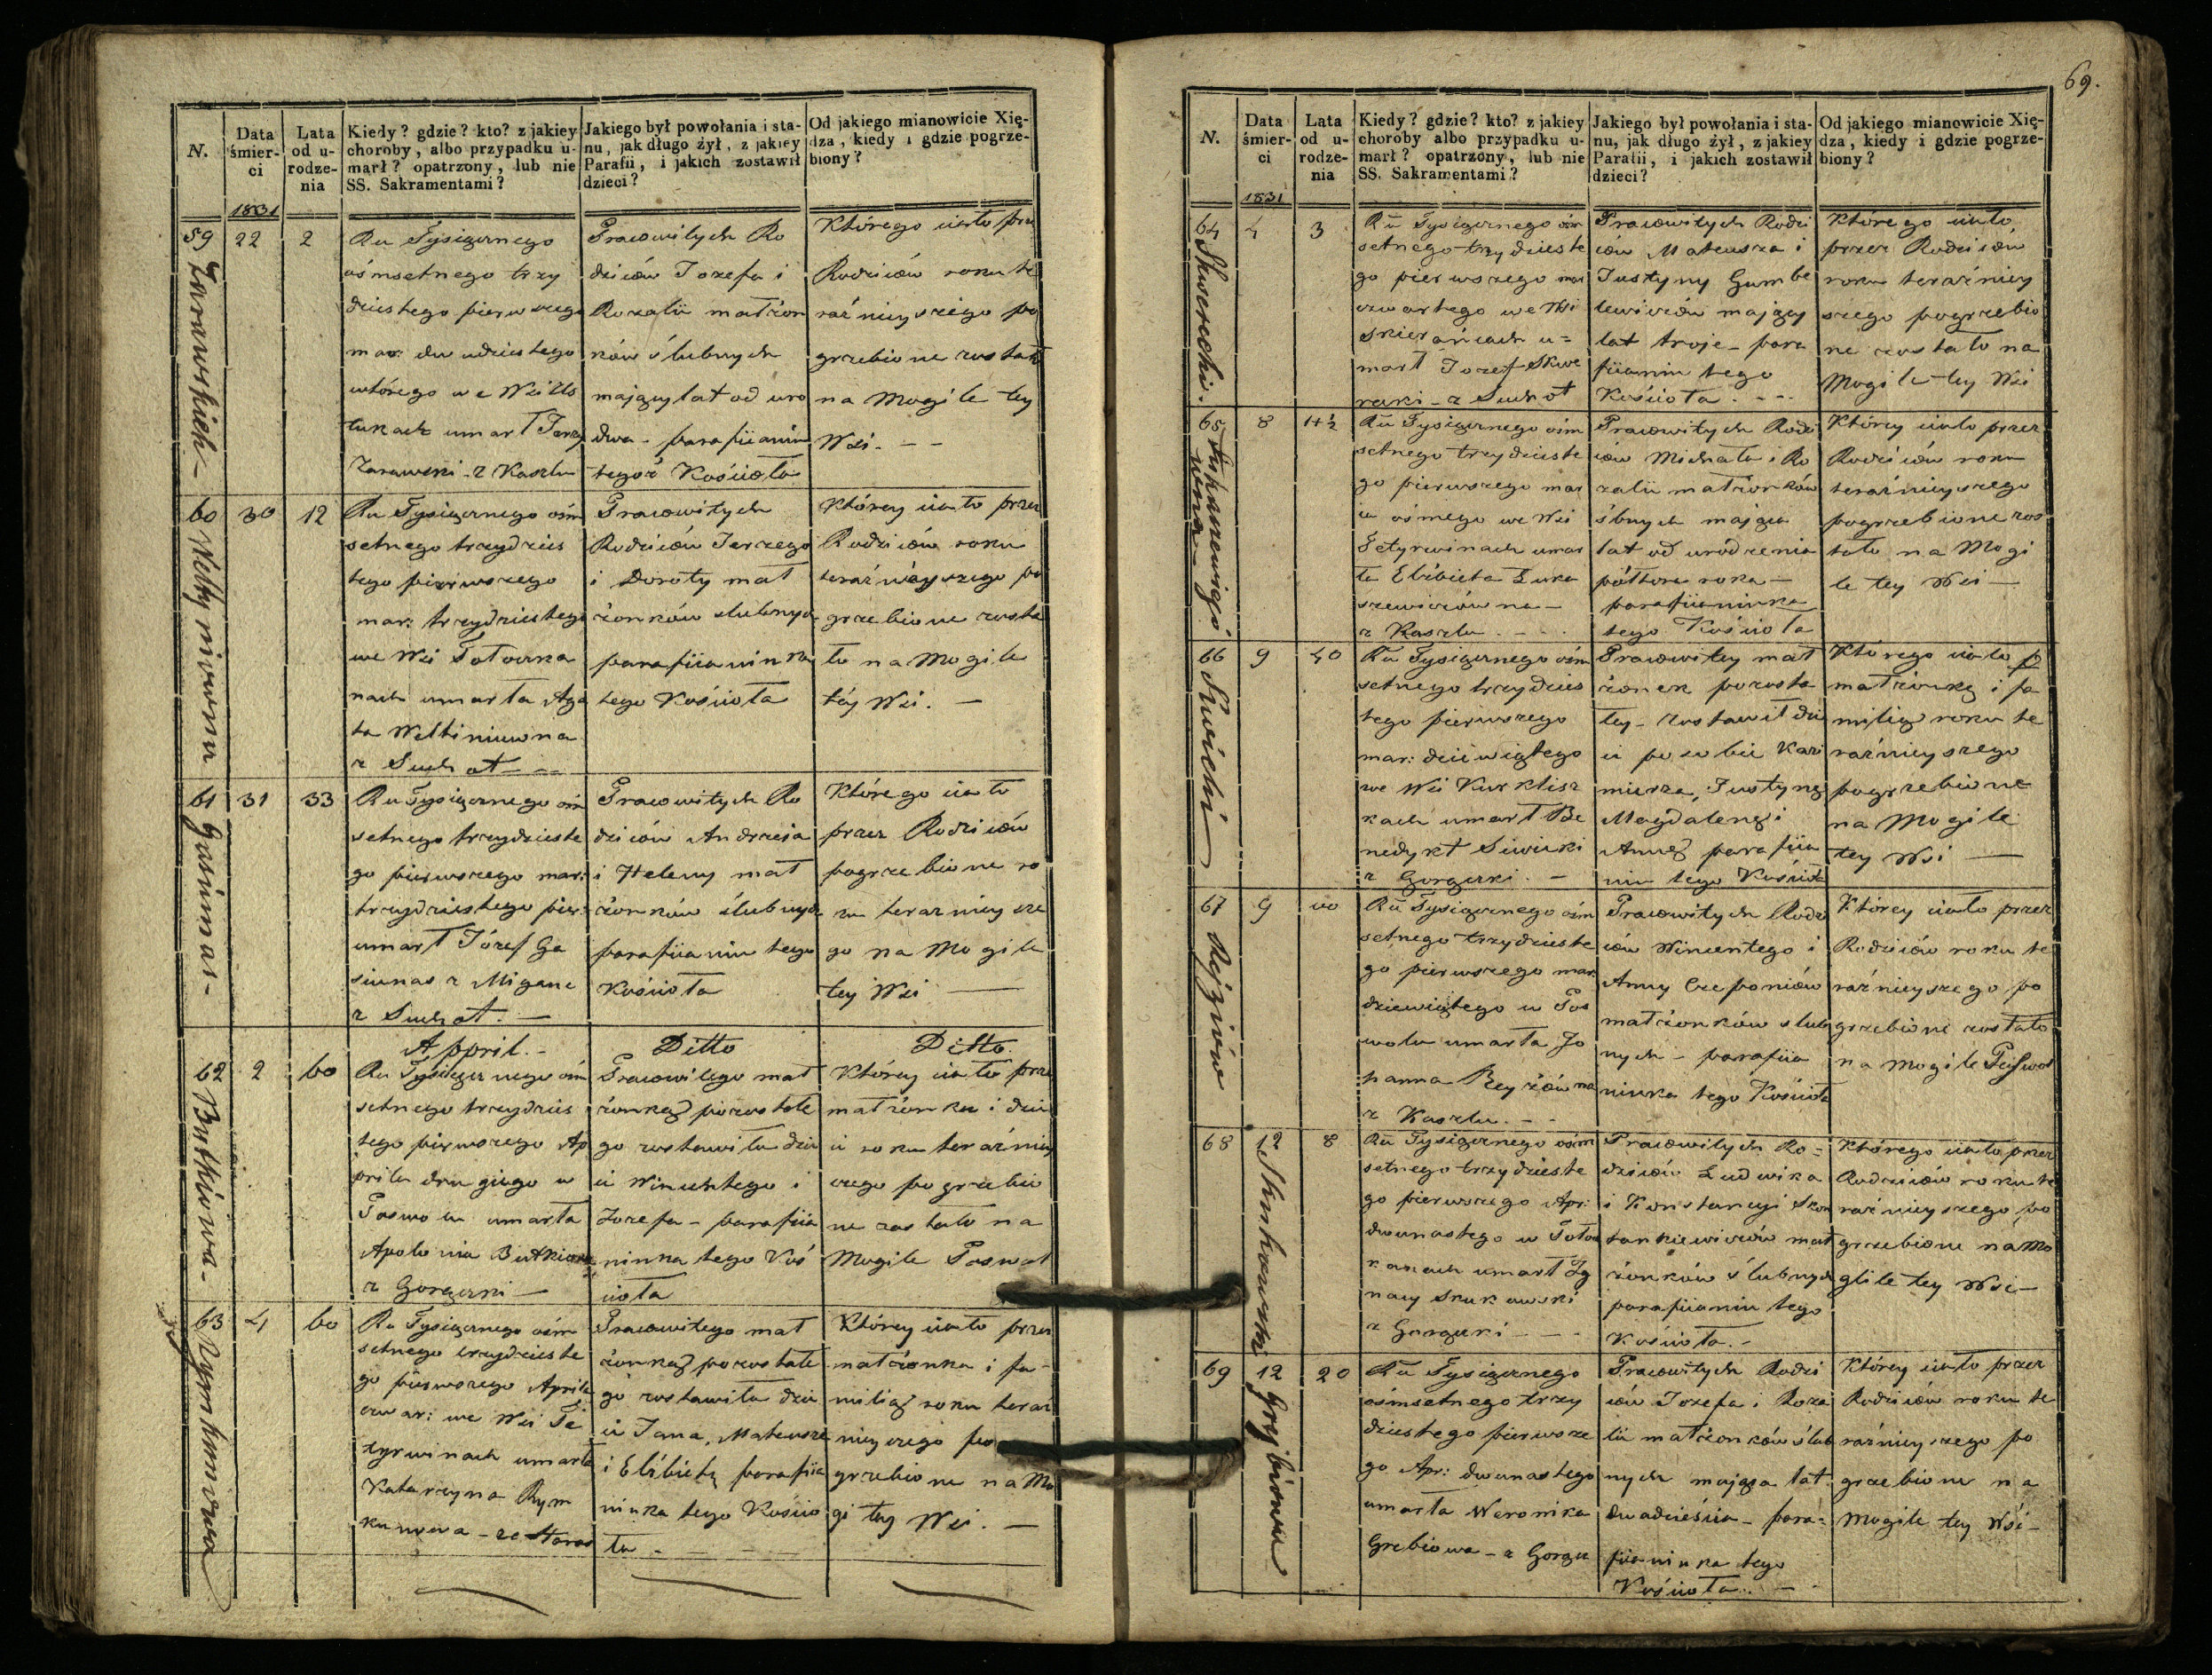 69.
N.
Data śmier-ci
Lata od u-rodze-nia
Kiedy? gdzie? kto? z jakiey
choroby, albo przypadku u-
marł? opatrzony, lub nie
SS. Sakramentami?
Jakiego był powołania i sta-
nu, jak długo żył, z jakiey
Parafii, i jakich zostawił
dzieci?
Od jakiego mianowicie Xię-
dza, kiedy i gdzie pogrze-
biony?
1831
59
22
2
Ru Tysiącznego
ośmsetnego trzy
dziestego pierwszego
mar: dwudziestego
wtórego we Wsi
tukach umarł Jerzy
Żarawski z Kaszlu
Pracowitych Ro
dziców Jozefa i
Rozalii małżon
ków ślubnych
mający lat od uro
dwa - parafiianin
tegoż Kościoła
Którego ciało prze
Rodziców roku te
raźnieyszego po
grzebione zostało
na Mogile tey
Wsi. - -
60
30
12
Ru Tysiącznego ośm
setnego trzydzies
tego pierwszego
mar: trzydziestego
we Wsi
nach umarła Aga
ta Weltiniuwna
z Suchot
Pracowitych
Rodziców Jerzego
i Doroty mał
żonków slubnych
parafiianinka
tego Kościoła
Którey ciało przez
Rodziców roku
teraźnieyszego po
grzebione zosta
ło na Mogile
téy Wsi. -
61
31
33
Ru Tysiącznego ośm
setnego trzydzieste
go pierwszego mar:
trzydziestego pier:
umarł Józef Ga
siunas z Migane
z Suchot. -
Pracowitych Ro
dziców Andrzeja
i Heleny mał
żonków ślubnych
parafiianin tego
Kościoła
Którego ciało
przez Rodziców
pogrzebione ro
ku teraznieysze
go na Mogile
tey Wsi -
April. -
Ditto
Ditto.
62
Butkiowa -
2
60
Ru Tysiącznego ośm
setnego trzydzies
tego pierwszego Ap
prila drugiego w
Poswolu umarła
Apolonia Butkiowa
z Gorgzki -
Pracowitego mał
żonką pozostałe
go zostawiła dzie
ci Wincentego i
Jozefa - parafiia
ninka tego Koś
cioła
Którey ciało prze
małżonka i dzie
ci roku teraźniey
szego pogrzebio
ne zostało na
Mogile Poswol
63
Rymkunowa
4
60
Ru Tysiącznego ośm
setnego trzydzieste
go pierwszego Aprila
czwar: we Wsi Te
tyrwinach umarła
Katarzyna Rym
kunowa - ze Staros
Pracowitego mał
żonką pozostałe
go zostawiła dzie
ci Jana, Mateusza
i Elżbietę parafiia
ninka tego Kościo
ła -
Którey ciało przez
małżonka i fa-
milią roku teraź
nieyszego po
grzebione na Mo
gi tey Wsi. -
N.
Data śmier-ci
Lata od u-rodze-nia
Kiedy? gdzie? kto? z jakiey
choroby albo przypadku u-
marł? opatrzony, lub nie
SS. Sakramentami?
Jakiego był powołania i sta-
nu, jak długo żył, z jakiey
Parafii, i jakich zostawił
dzieci?
Od jakiego mianowicie Xię-
dza, kiedy i gdzie pogrze-
biony?
1831
64
4
3
Ru Tysiącznego ośm
setnego trzydzieste
go pierwszego mar
czwartego we Wsi
Skierańcach u=
marł Jozef Skwe
recki - z Suchot
Pracowitych Rodzi
ców Mateusza i
Justyny Gumbe
lewiczów mający
lat troje - para
fiianin tego
Kościoła
Którego ciało,
przez Rodziców
roku teraźniey
szego pogrzebio
ne zostało na
Mogile tey Wsi
65
8
1½
Ru Tysiącznego ośm
setnego trzydzieste
go pierwszego mar
ca ośmego we Wsi
Tetyrwinach umar
ła Elżbieta Łuka
szewiczówna -
z Kaszlu
Pracowitych Rodzi
ców Michała i Ro
zalii małżonków
ślbnych mająca
lat od urodzenia
półtora roku -
parafiianinka
tego Kościoła
Którey ciało przez
Rodziców roku
teraźnieyszego
pogrzebione zos
tało na Mogi
le tey Wsi -
66
Siwicki
9
40
Ru Tysiącznego ośm
setnego trzydzies
tego pierwszego
mar: dziewiątego
we Wsi Kurklisz
kach umarł Be
nedykt Siwicki
z Gorgzki. -
Pracowitey mał
żonek pozosta
łey - zostawił dzie
ci po sobie Kazi
mierza, Justynę
Magdalenę i
Annę parafiia
nin tego Kościoła
Którego ciało p
małżonkę i fa
milią roku te
raźnieyszego
pogrzebione
na Mogile
tey Wsi -
67
9
Ru Tysiącznego ośm
setnego trzydzieste
go pierwszego mar.
dziewiątego w Pos
wolu umarła Jo
hanna Reyżówna
z Kaszlu. - -
Pracowitych Rodzi
ców Wincentego i
Anny
małżonków slub
nych - parafiia
ninka tego Kościoła
Którey ciało przez
Rodziców roku te
raźnieyszego po
grzebione zostało
na Mogile
68
12
8
Ru Tysiącznego ośm
setnego trzydzieste
go pierwszego Apr:
dwunastego w
kanach umarł Ig
nacy Skukowski
z Gorgzki - - -
Pracowitych Ro=
dziców Ludwika
i Konstancyi
małżonków ślubnych
parafiianin tego
Kościoła. -
Którego ciało przez
Rodziców roku te
raźnieyszego po
grzebione na Mo
gile tey Wsi -
69
12
20
Ru Tysiącznego
ośmsetnego trzy
dziestego pierwsze
go Apr: dwunastego
umarła Weronika
Grebiowa - z Gorgz
Pracowitych Rodzi
ców Jozefa i Roza
lii małżonków ślub
nych mająca lat
dwadzieścia - para=
fiianinka tego
Kościoła. -
Którey ciało przez
Rodziców roku te
raźnieyszego po
grzebione na
Mogile tey Wsi -